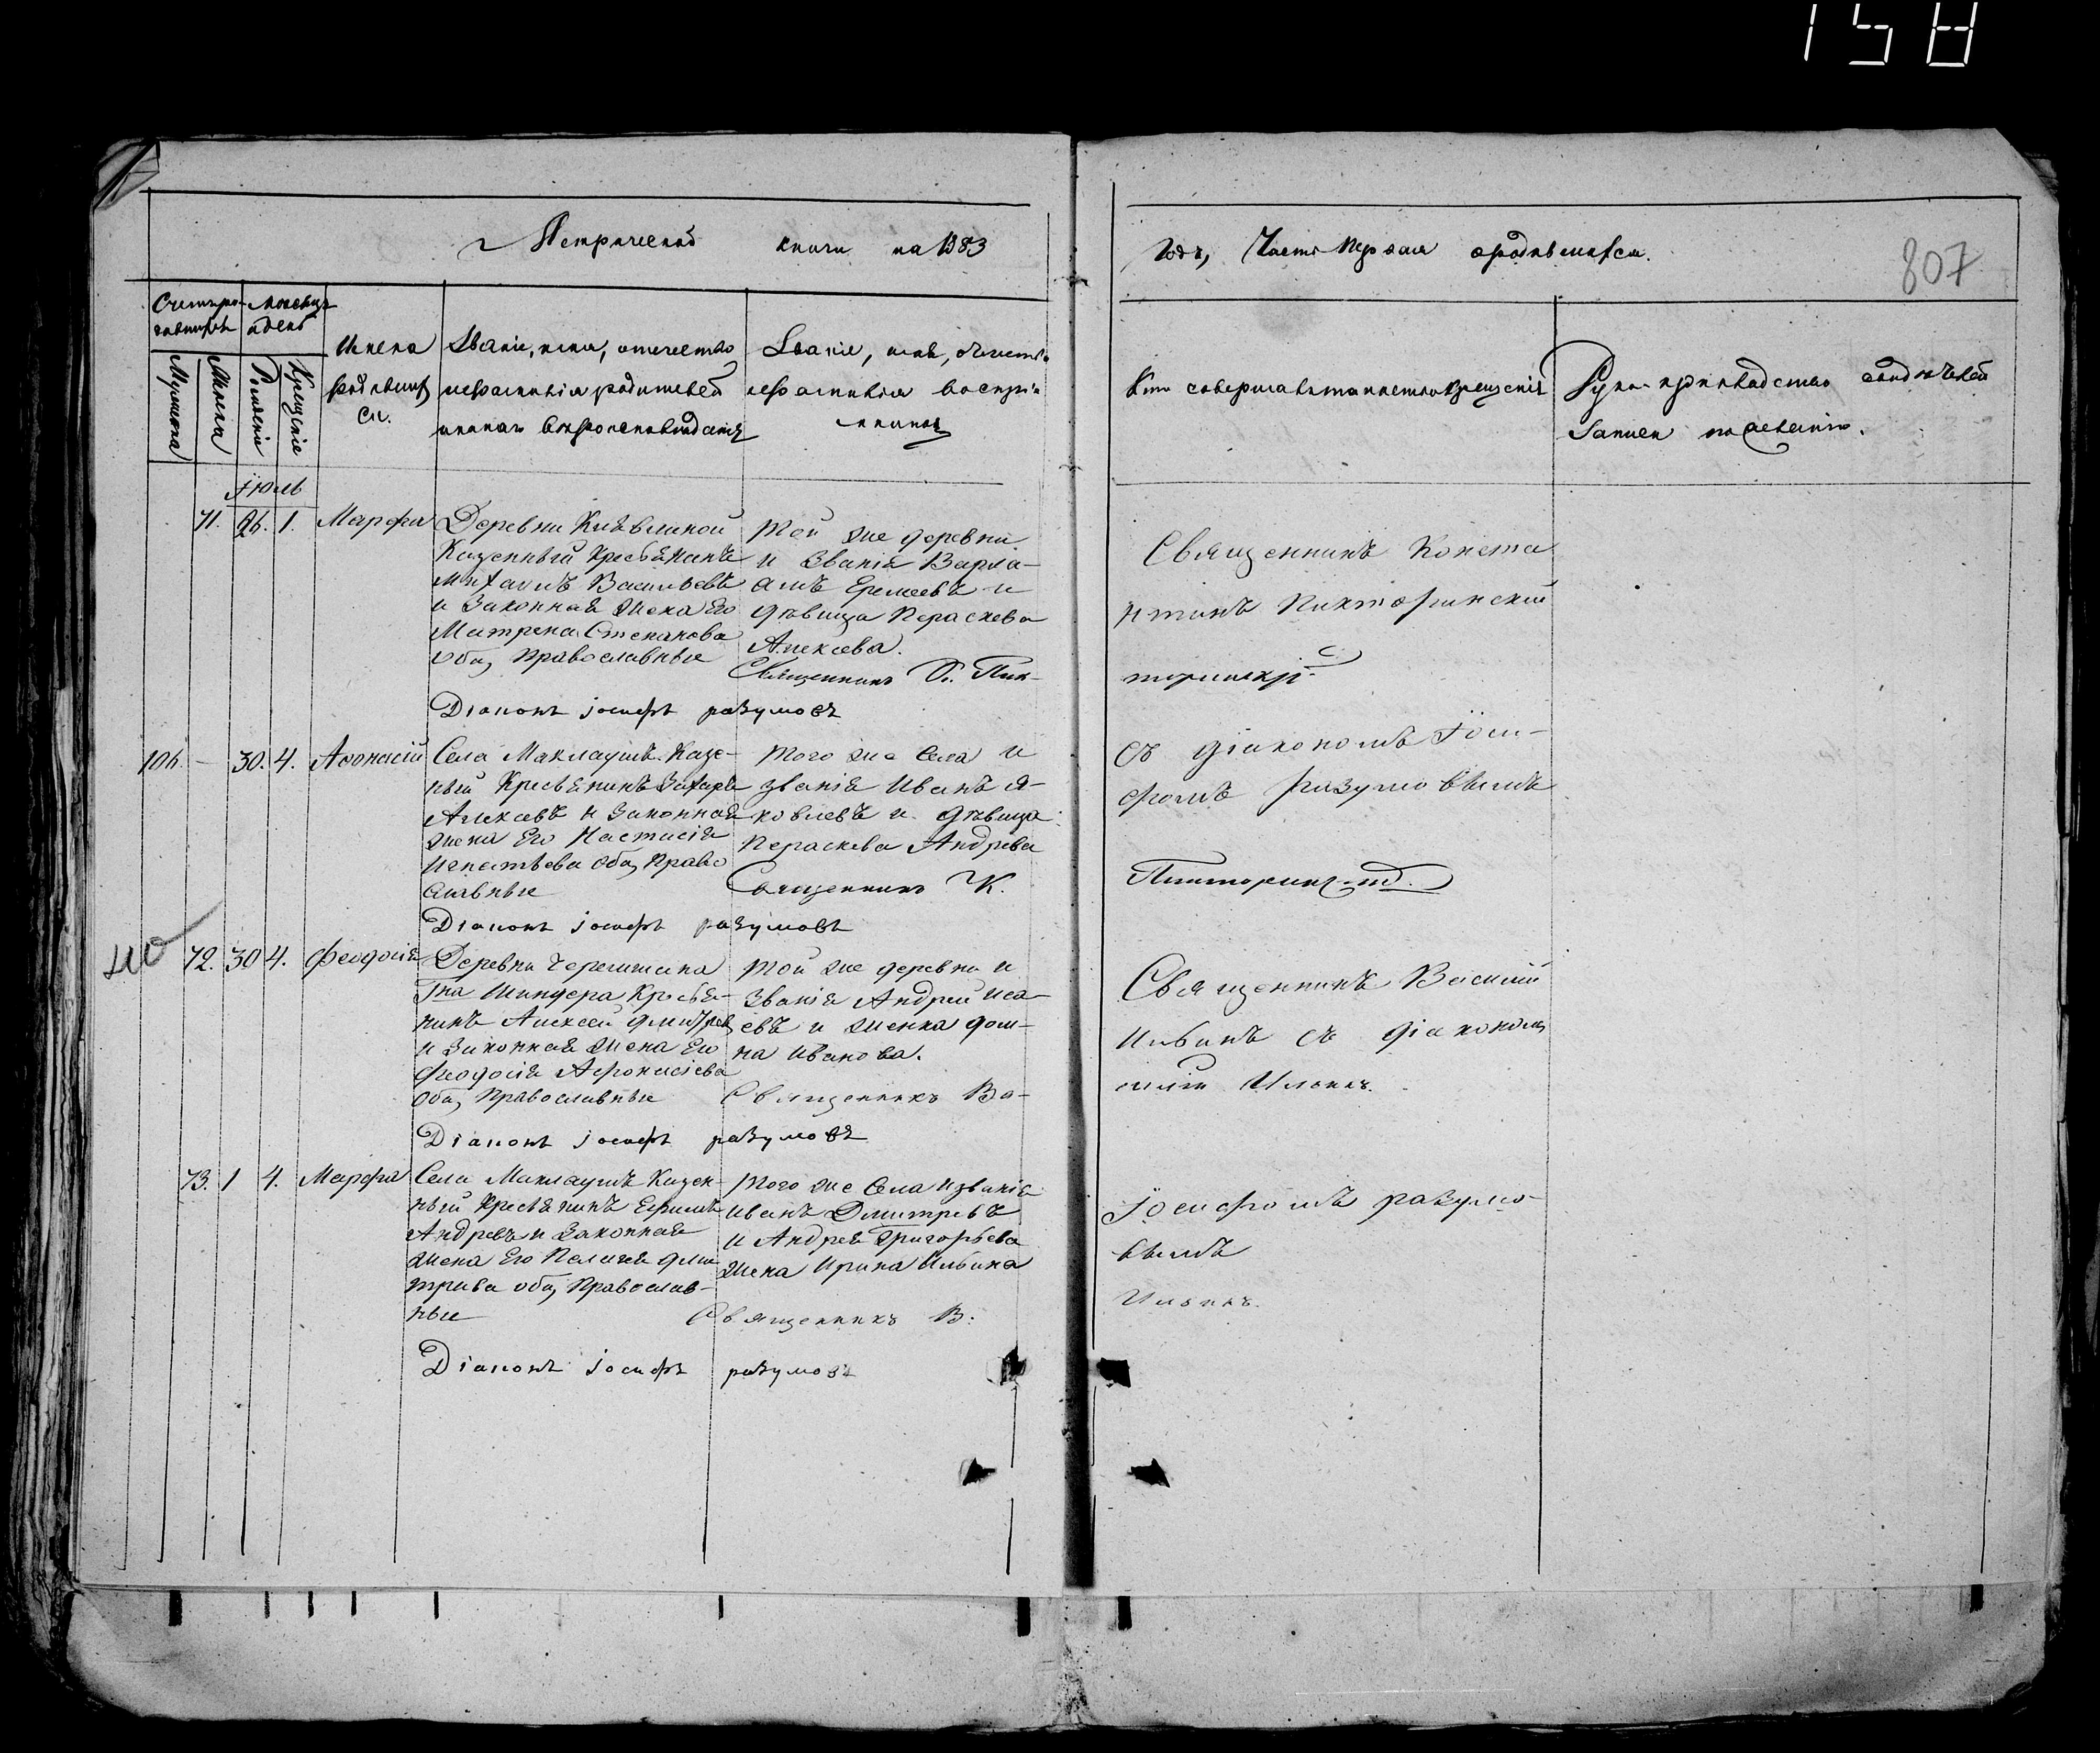 158
Метрической книги на 1883
годъ, Часть первая о родившихся.
807
Счетъ ро-
дившихся
Месяцъ
и день
Мужеска
Женска
Рожденiя
Крещенiе
Имена
родивших
ся.
Званiе, имя, отчество
и фамилiя родителей
и какого вероисповеданiя
Званiе, имя, отчество
и фамилiя воспрiе-
мниковъ
Кто совершалъ таинство крещенiя
Руко-прикладство свидетелей
записи по желанiю.
Iюль
71. 26. 1. Марфа
Деревни
Казенный Крестьянинъ
Михаилъ Васильевъ
и Законная Жена Его
Матрена Степанова
оба Православные
Той же деревни
и Званiя Варла-
амъ Еремеевъ и
девица Параскева
Алексеева.
Священникъ К. Пик-
Дiаконъ Iосифъ разумовъ
Священникъ Конста
нтинъ Пикторинскiй
торинскiй
106. – 30. 4. Афонасiй
Села Маклаушъ Казе-
ный Крестьянинъ Захаръ
Алексеевъ и Законная
жена Его Настасiя
Игнатьева оба Право
славные
Того же Села и
званiя Иванъ Я-
ковлевъ и девица
Параскева Андреева
Священникъ К.
Дiаконъ Iосифъ разумовъ
съ дiакономъ Iоси-
фомъ разумовымъ
Пикторинскiй.
72. 30 4. Феодосiя
Деревни Черемшана
Шиндера Крестья-
нинъ Алексей Дмитрiев
и Законная Жена Его
Феодосiя Афонасiева
оба Православные
Той же деревни и
Званiя Андрей Иса-
евъ и женка дом-
на Иванова.
Священникъ Ва-
Дiаконъ Iосифъ разумовъ
Священникъ Василiй
Ильинъ съ дiакономъ
силiй Ильинъ.
73. 1 4. Марфа
Села Маклаушъ Казен-
ный Крестьянинъ Ефимъ
Андреевъ и Законная
Жена Его Пелагея Дми
трива оба Православ-
ные
Того же Села и званiя
Иванъ Дмитревъ
и Андрея Григорьева
жена Ирина Ильина
Священникъ В.
Дiаконъ Iосифъ разумовъ
Iосифомъ разумо-
вымъ
Ильинъ.